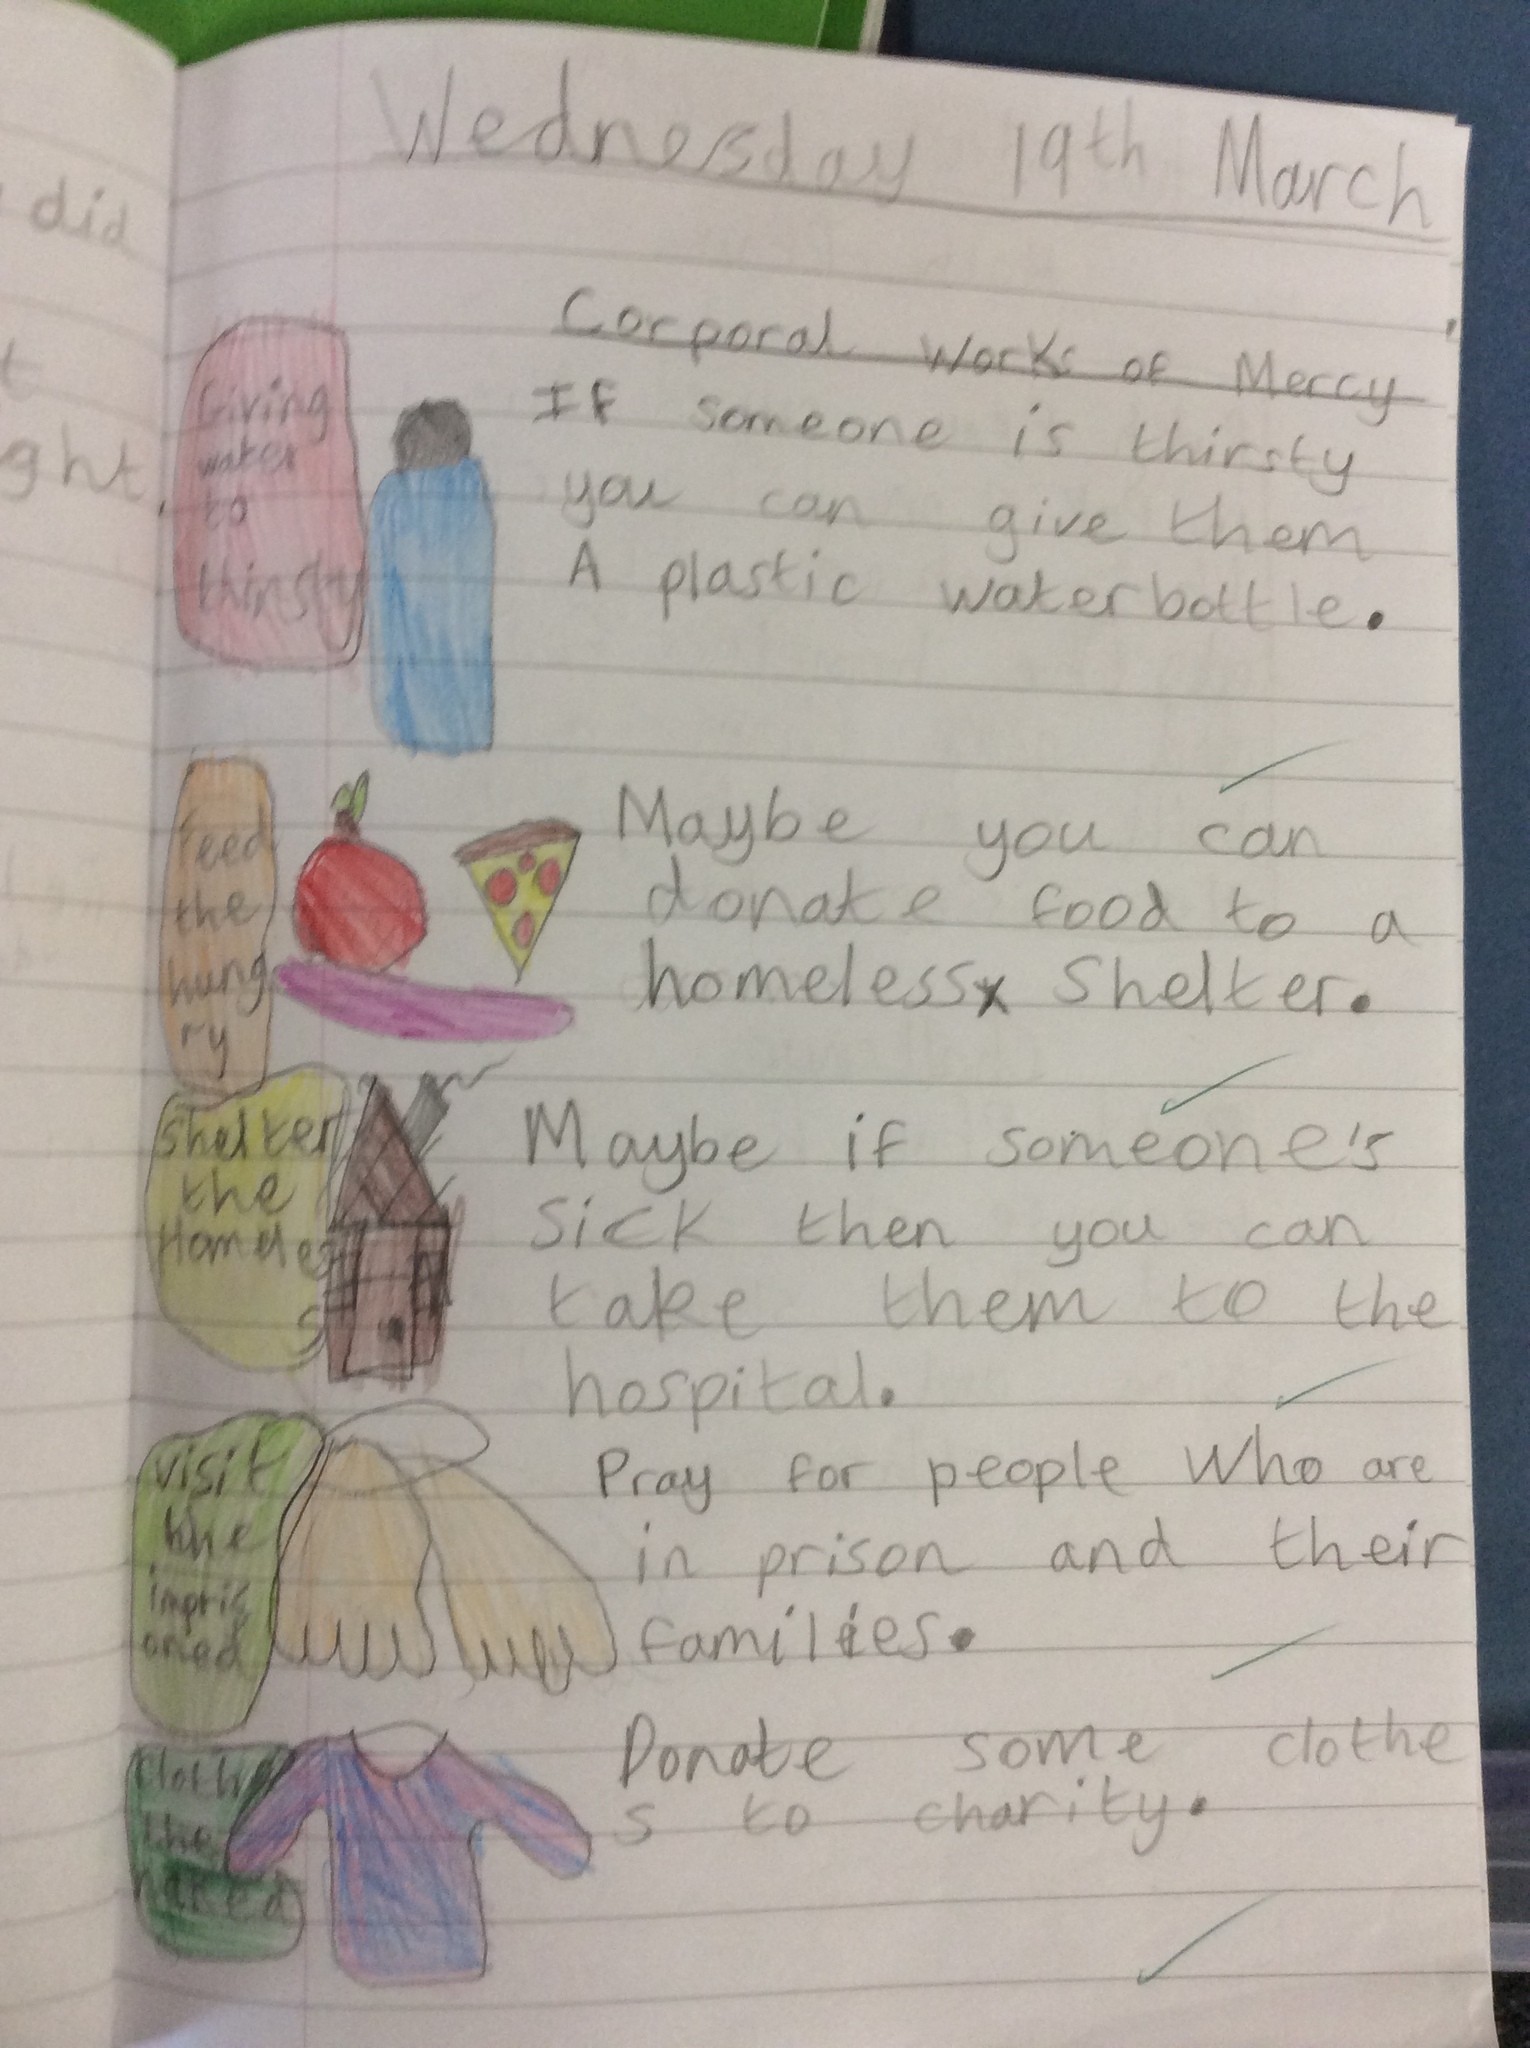 did
t
ght.
Wednesday 19th March
Corporal Works of Mercy
Giving
water
to
thirsty
If someone is thirsty
you can give them
A plastic waterbottle.
Feed
the
hung
ry
Maybe you can
donate food to a
homeless Shelter.
Shelter
the
Homeles
s
Maybe if someone's
Sick then you can
take them to the
hospital.
visit
the
impris
oned
Pray for people Who are
in prison and their
families.
Clothe
the
naked
Donate some clothe
s to charity.